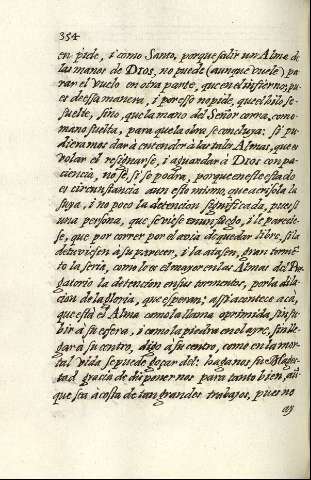 354
en pide, i como Santo, porque salir un Alma de
las manos de DIOS, no puede (aunque vuele) pa
rar el vuelo en otra parte, que en el infierno; pu
es de essa manera, i por esso no pide, que el hilo se
suelte, sino, que la mano del Señor corra, como
mano suelta, para que la obra se concluya: si pu
dieramos dar à entender à las tales Almas, que es
volar el resignarse, i aguardar à DIOS con pa
ciencia, no sè, si se podra, porque en este estado
es circunstancia aun esto mismo, que acrisola la
suya, i no poco la detencion significada, pues si
una persona, que se viese en un fuego, i le parecie
se, que por correr por el avia de quedar libre, si la
detuviesen à su parecer, i la atasen, gran tormẽ
to la seria, como lo es el mayor en las Almas del Pur
gatorio la detencion en sus tormentos, por la dila
cion de la gloria, que esperan; assi acontece aca,
que està el Alma como la llama oprimida, sin su
bir à su esfera, i como la piedra en el ayre, sin lle
gar à su centro, digo à su centro, como en la mor
tal vida se puede goçar del: haganos su Mages
tad gracia de disponernos para tanto bien, aũ
que sea à costa de tan grandes trabajos, pues no
ay